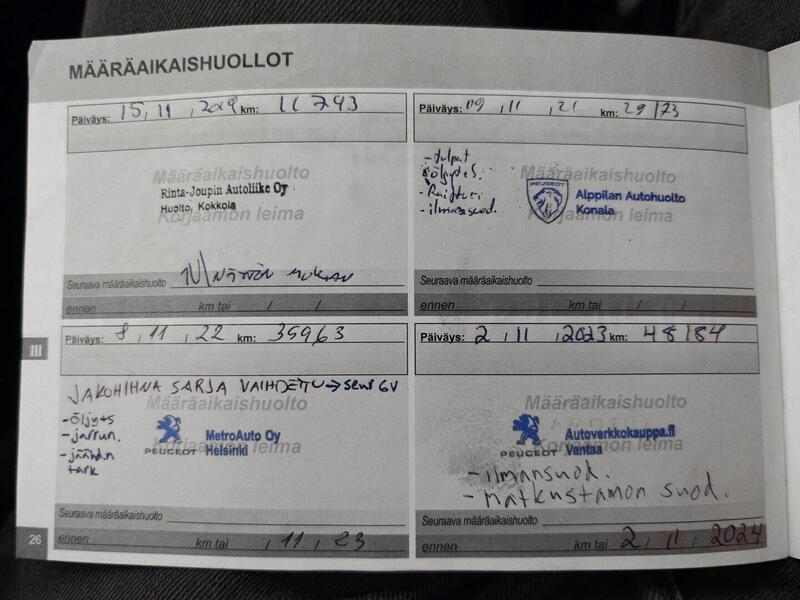 MÄÄRÄAIKAISHUOLLOT
Päiväys: 15, 11, 2019 km: 11743
Määräaikaishuolto
Rinta-Joupin Autoliike Oy
Huolto, Kokkola
Korjaamon leima
1V/NÄYTÖN MUKAAN
Seuraava määräaikaishuolto
ennen km tai / /
Päiväys: 09, 11, 21 km: 29173
- tulpat
- öljyt+s.
- Raitisi.
- ilmansuod.
Määräaikaishuolto
PEUGEOT
Alppilan Autohuolto
Konala
Korjaamon leima
Seuraava määräaikaishuolto
ennen km tai / /
III
Päiväys: 8, 11, 22 km: 35963
JAKOHIHNA SARJA VAIHDETTU → seur 6V
Määräaikaishuolto
- öljyt+s
- jarrun.
- jäähd.n
tark
PEUGEOT
MetroAuto Oy
Helsinki
Korjaamon leima
Seuraava määräaikaishuolto
ennen km tai , 11, 23
Päiväys: 2, 11, 2023 km: 48184
Määräaikaishuolto
PEUGEOT
Autoverkkokauppa.fi
Vantaa
Korjaamon leima
- ilmansuod.
- matkustamon suod.
Seuraava määräaikaishuolto
ennen km tai 2, 11, 2024
26